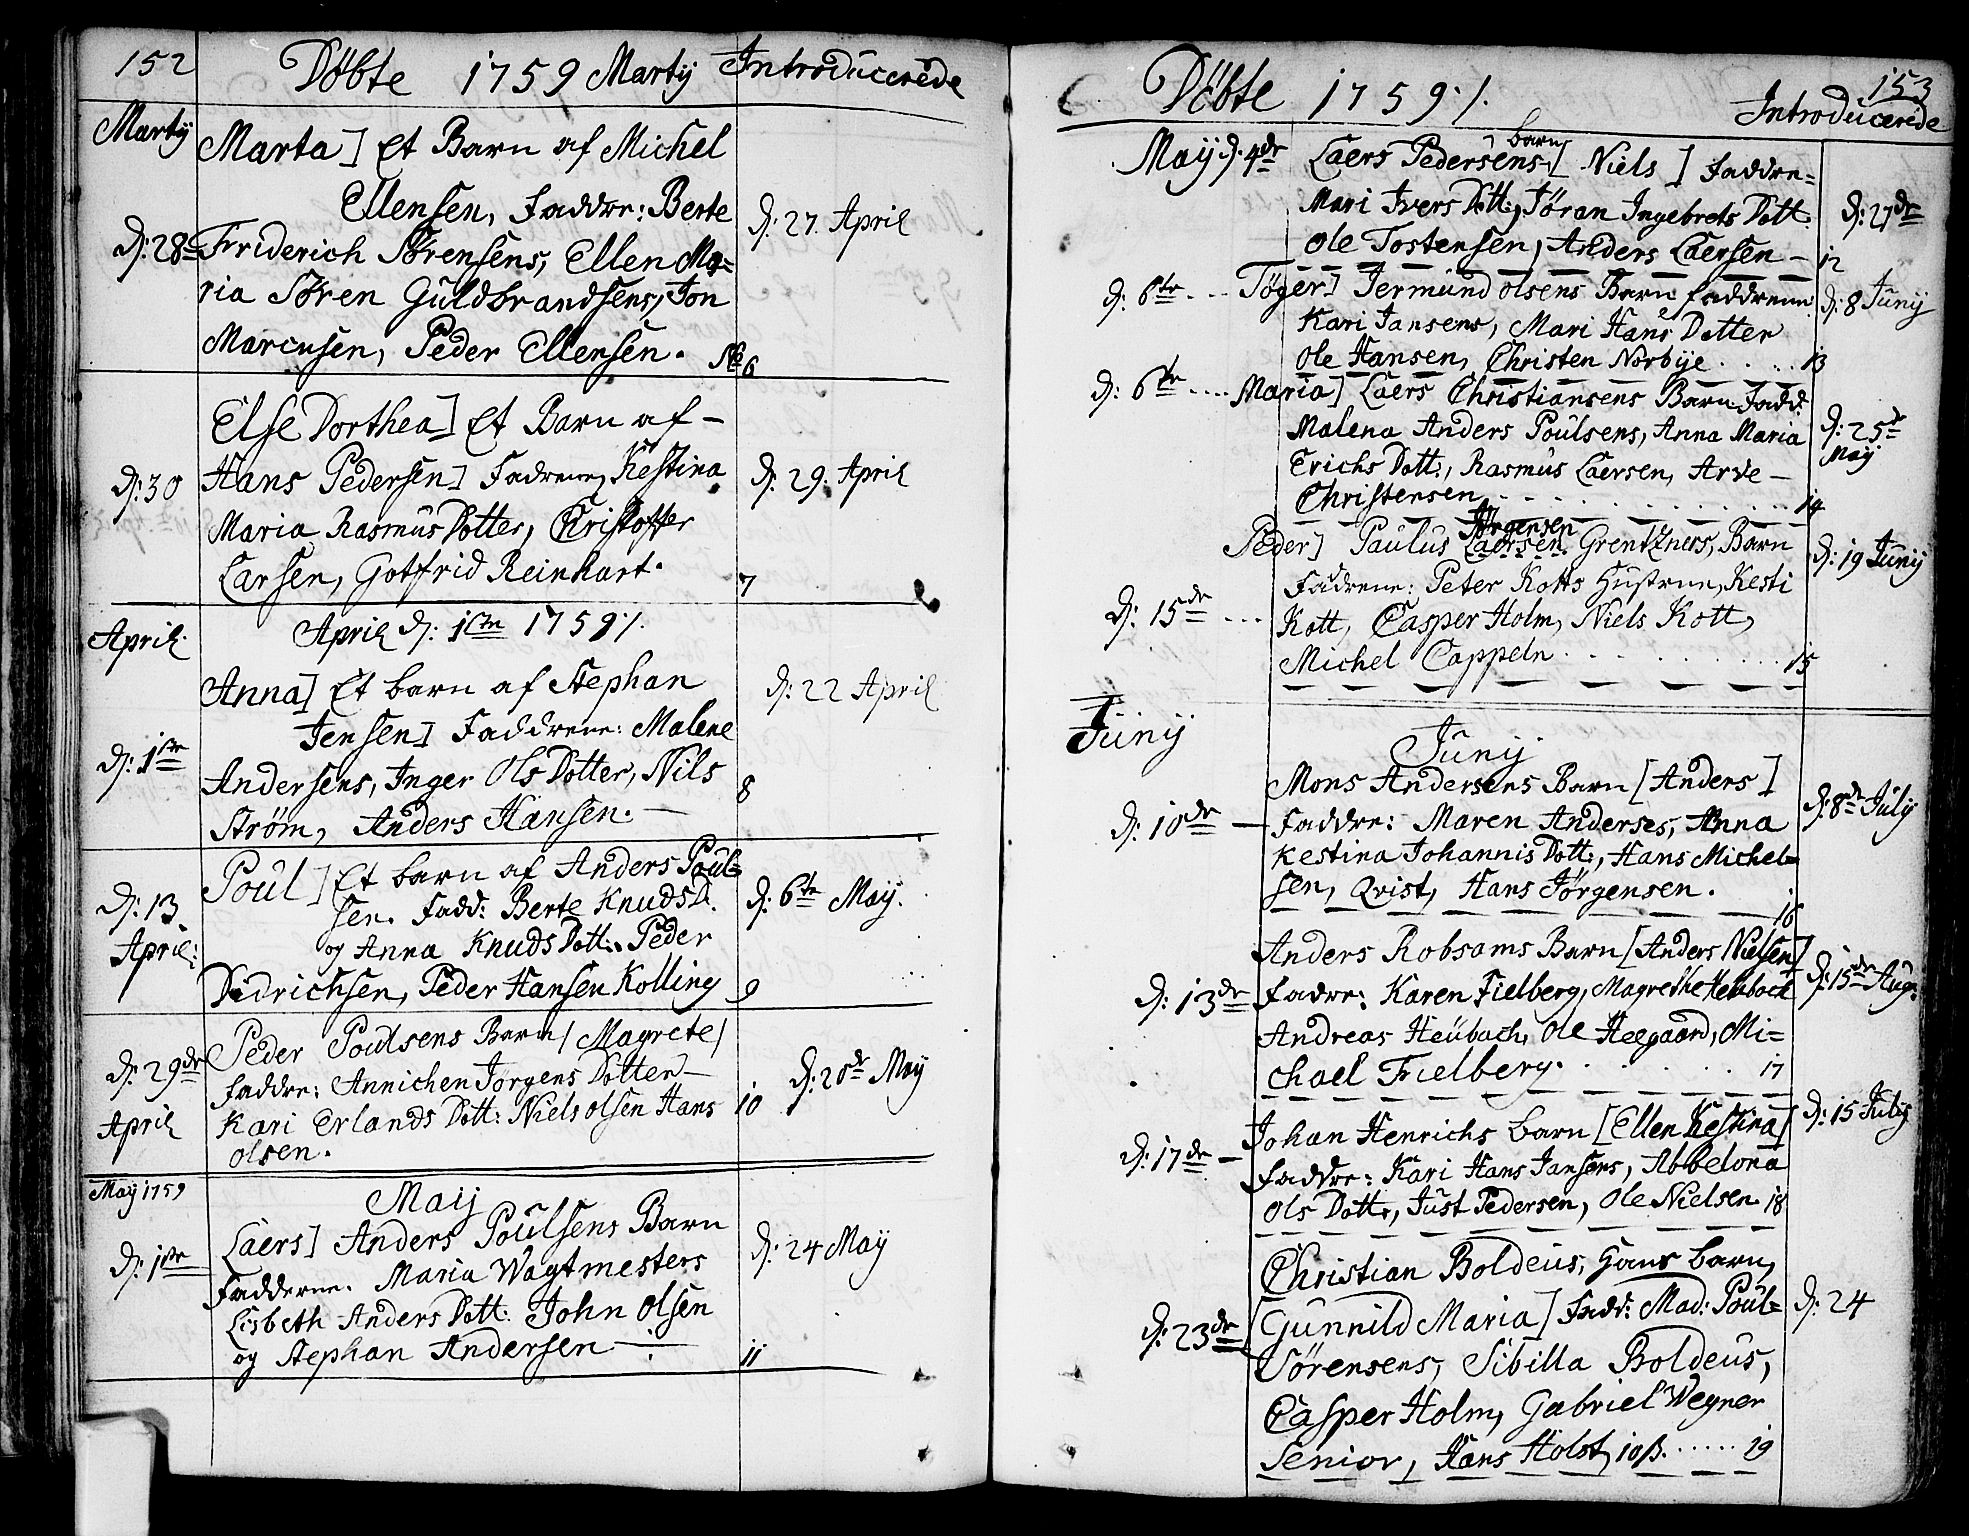 152
Döbte 1759 Martij Introducerede
Martij
Marta] Et Barn af Michel
Ellensen, Faddre: Berte
d: 28= Friderich Sörensens, Ellen Ma=
d: 27. April
ria Sören Guldbrandsens, Jon
Marcusen, Peder Ellensen. No 6
Else Dorthea] Et Barn af –
d: 30 Hans Pedersen] Fadrene, Kestina
d: 29. April
Maria Rasmus Dotter, Christoffer
Larsen, Gotfrid Reinhart. 7
April. April d: 1ste 1759 ./.
Anna] Et barn af Stephan
d: 22 April
Jensen] Faddrene: Malene
d: 1ste Andersens, Inger Ols Dotter, Nils 8
Ström, Anders Hansen. —
Poul] Et barn af Anders Poul=
d: 13 April: sen. Fadd: Berte Knuds D.
d: 6te Maij.
og Anna Knuds Dott: Peder
Didrichsen, Peder Hansen Kolling 9
Peder Poulsens Barn / Magrete /
d: 29de April Faddre: Annichen Jörgens Dotter —
d: 20de Maij
Kari Erlands Dott: Niels olsen Hans 10
olsen.
Maij 1759 Maij
Laers] Anders Poulsens Barn
d: 1ste Fadderne. Maria Wagtmesters
d: 24 Maij
Lisbeth Anders Dott: John Olsen
og Stephan Andersen — 11
153
Döbte 1759 ./. Introducerede
Maij d. 4de Laers Pedersens barn [Niels] Faddre=
Mari Ivers Dott:, Jöran Ingebrets Dott:
d: 27de
Ole Tostensen, Anders Laersen – 12
d: 6te ... Töger] Jermund olsens Barn faddrene
d: 8 Junij
Kari Jansens, Mari Hans Dotter
Ole Hansen, Christen Norbye . . . . 13
d: 6te .... Maria] Laers Christiansens Barn Fadd:
Malena Anders Poulsens, Anna Maria
d: 25te Maij
Erichs Dott:, Rasmus Laersen, Arve –
Christensen . . . . . . 14
Jörgensen
Peder] Paulus Laersen Grentzners, Barn
d: 19 Junij
Fadrene: Peter Kotts Hustrue, Kesti
d: 15de ... Kott, Casper Holm, Niels Kott,
Michel Cappeln . . . . . . 15
Junij
Junij
Mons Andersens Barn [Anders]
d: 8de Julij
d: 10de — Faddre: Maren Anderses, Anna
Kestina Johannis Dott:, Hans Michel=
sen, Qvist, Hans Jörgensen. 16
Anders Robsams Barn [Anders Nielsen]
d: 13de Fadre: Karen Fielberg, Magrethe Heubach
d: 15de Aug:
Andreas Heubach, Ole Heegaard, Mi=
chael Fielberg. . . . . 17
Johan Henrichs barn [Ellen Kestina]
d: 15 Julij
d: 17de — Faddre: Kari Hans Jansens, Abbelona
Ols Dott:, Just Pedersen, Ole Nielsen. 18
Christian Boldeus, Hans barn,
d: 23de [Gunnild Maria] Fadd: Mad: Poul=
d: 24
Sörensens, Sibilla Boldeus,
Casper Holm, Gabriel Wegner
Senior, Hans Holst, 10 ß. ...... 19